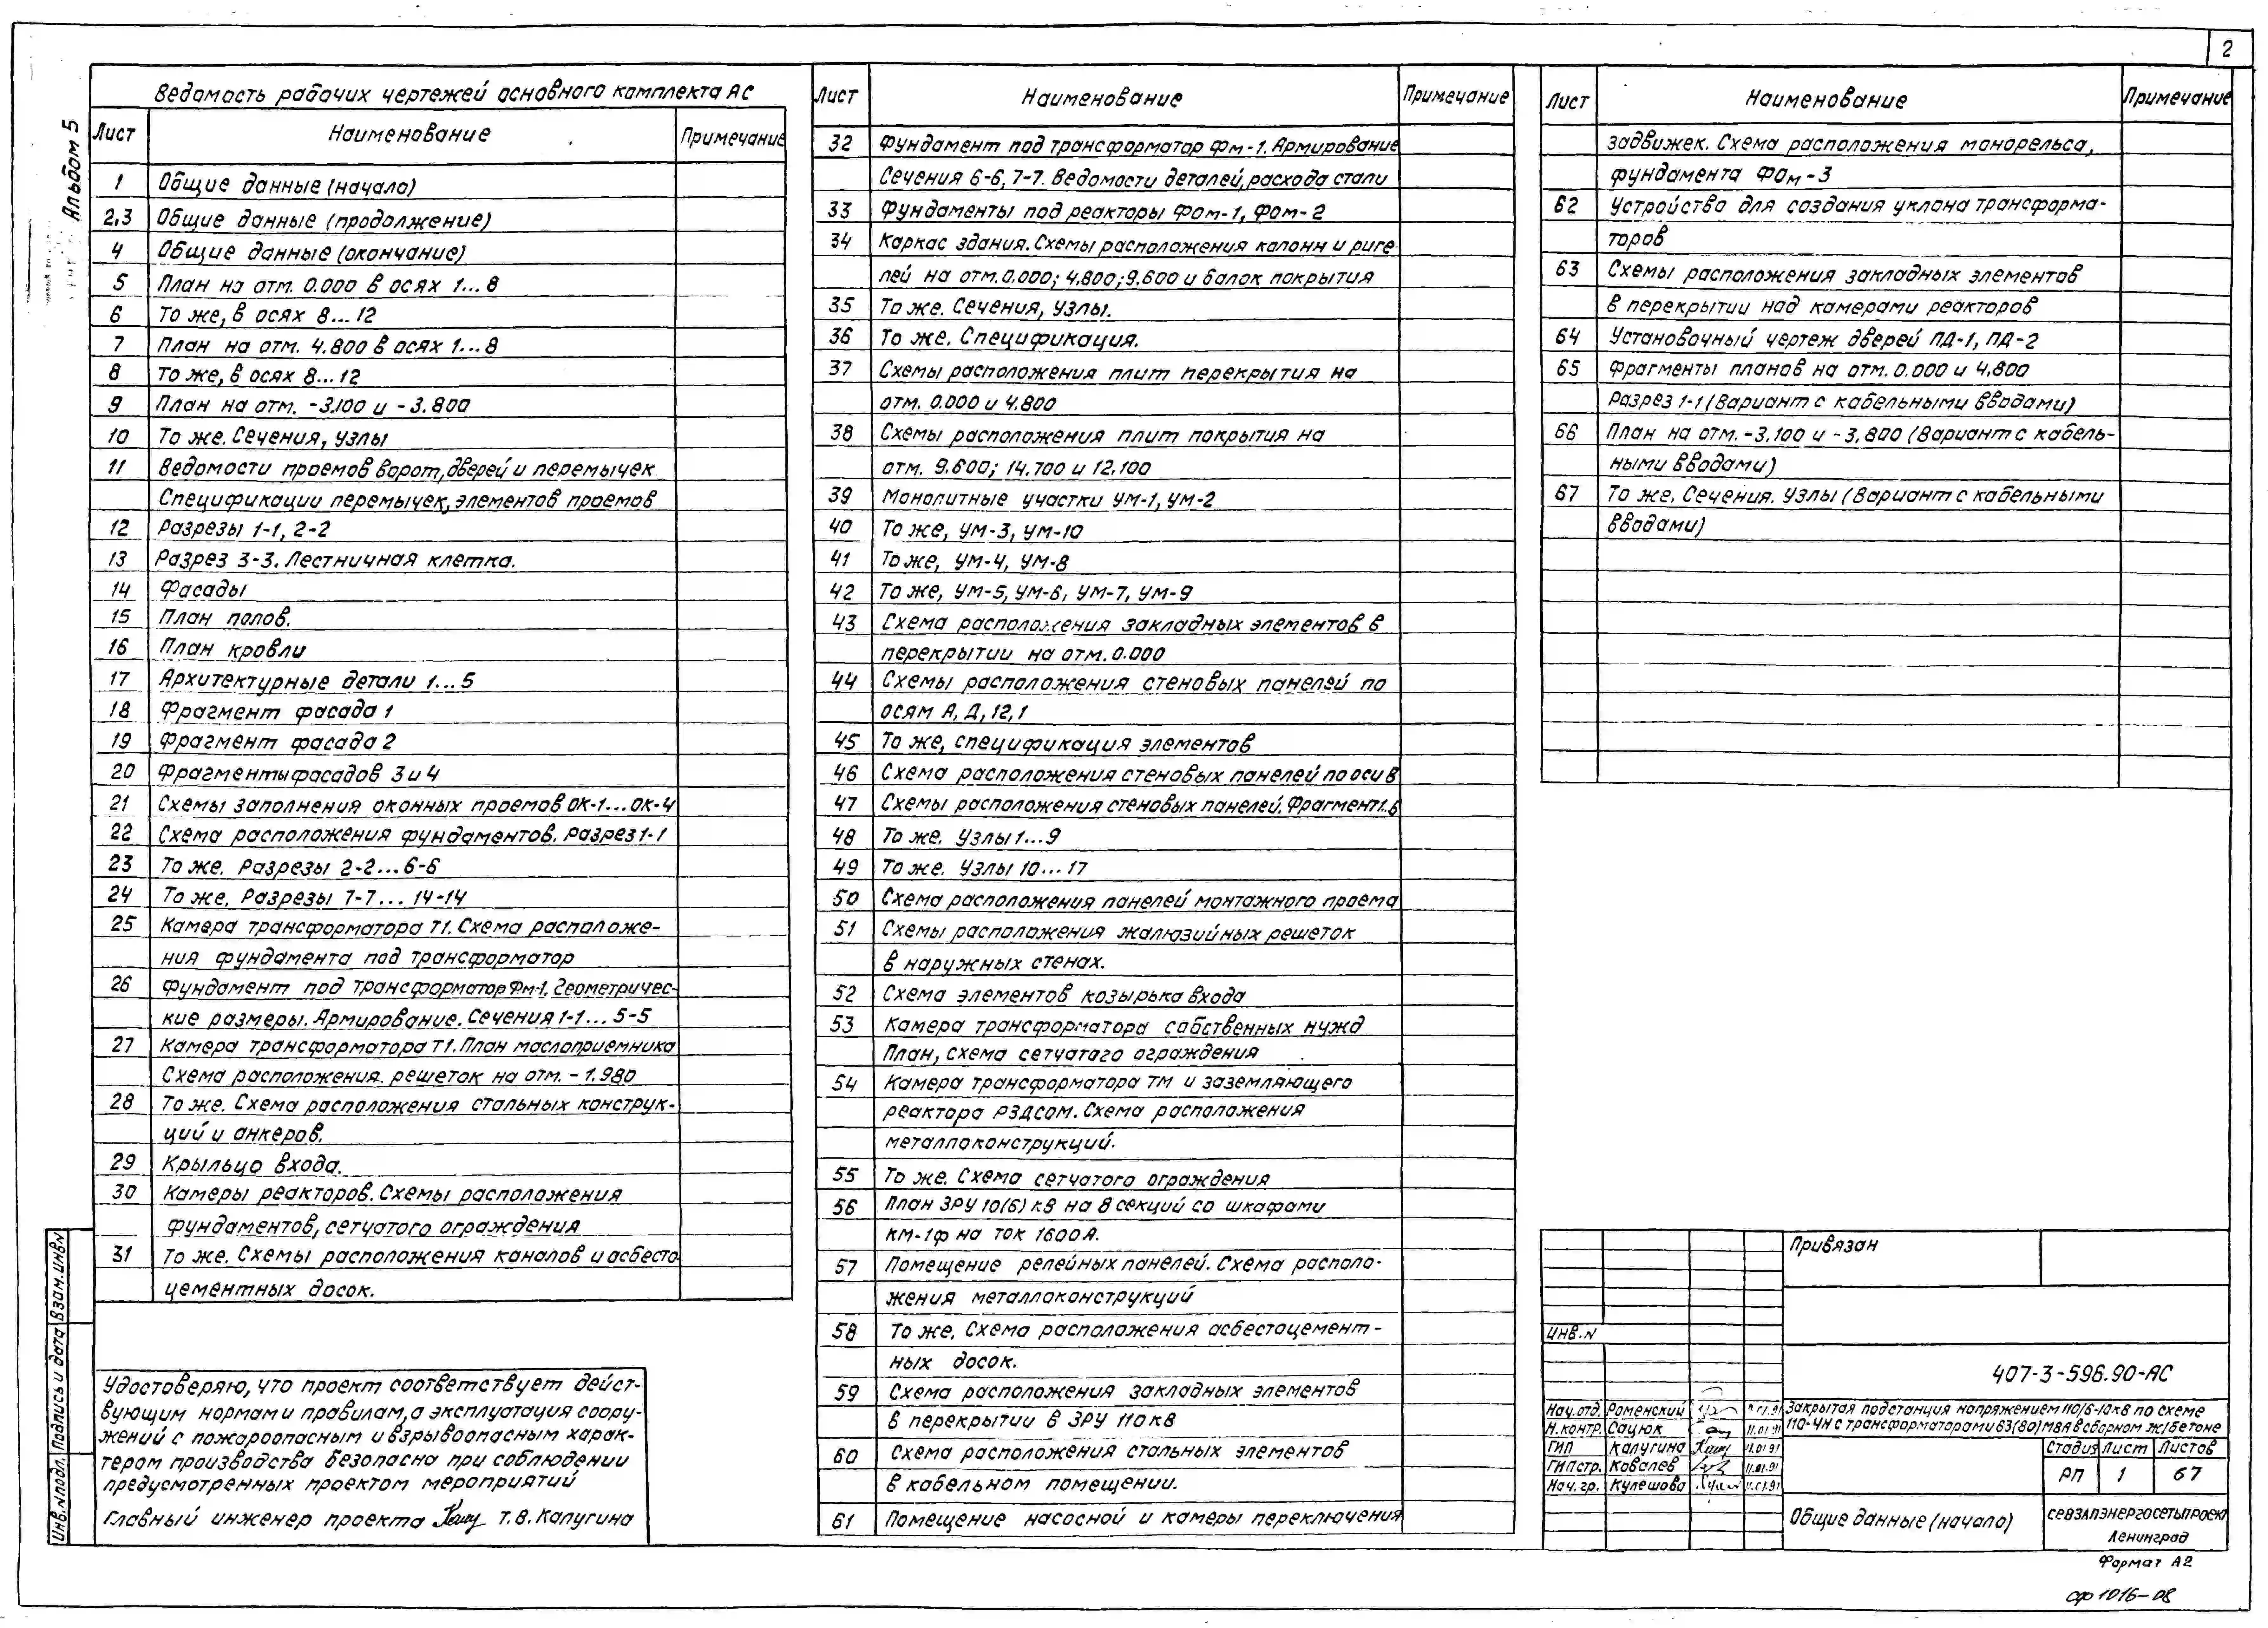 2
Альбом 5
Ведомость рабочих чертежей основного комплекта АС
Лист Наименование Примечание
1 Общие данные (начало)
2,3 Общие данные (продолжение)
4 Общие данные (окончание)
5 План на отм. 0.000 в осях 1...8
6 То же, в осях 8...12
7 План на отм. 4.800 в осях 1...8
8 То же, в осях 8...12
9 План на отм. -3.100 и -3.800
10 То же. Сечения, узлы
11 Ведомости проемов ворот, дверей и перемычек
Спецификации перемычек, элементов проемов
12 Разрезы 1-1, 2-2
13 Разрез 3-3. Лестничная клетка.
14 Фасады
15 План полов.
16 План кровли
17 Архитектурные детали 1...5
18 Фрагмент фасада 1
19 Фрагмент фасада 2
20 Фрагменты фасадов 3 и 4
21 Схемы заполнения оконных проемов ОК-1...ОК-4
22 Схема расположения фундаментов. Разрез 1-1
23 То же. Разрезы 2-2...6-6
24 То же. Разрезы 7-7...14-14
25 Камера трансформатора Т1. Схема расположе-
ния фундамента под трансформатор
26 Фундамент под трансформатор Фм-1. Геометричес-
кие размеры. Армирование. Сечения 1-1...5-5
27 Камера трансформатора Т1. План маслоприемника
Схема расположения решеток на отм. -1.980
28 То же. Схема расположения стальных конструк-
ций и анкеров.
29 Крыльцо входа.
30 Камеры реакторов. Схемы расположения
фундаментов, сетчатого ограждения
31 То же. Схемы расположения каналов и асбесто-
цементных досок.
Удостоверяю, что проект соответствует дейст-
вующим нормам и правилам, а эксплуатация соору-
жений с пожароопасным и взрывоопасным харак-
тером производства безопасна при соблюдении
предусмотренных проектом мероприятий
Главный инженер проекта Т.В. Калугина
Инв.№подл. Подпись и дата Взам.инв.№
Лист Наименование Примечание
32 Фундамент под трансформатор Фм-1. Армирование
Сечения 6-6, 7-7. Ведомости деталей, расхода стали
33 Фундаменты под реакторы Фом-1, Фом-2
34 Каркас здания. Схемы расположения колонн и риге-
лей на отм. 0.000; 4.800; 9.600 и балок покрытия
35 То же. Сечения, узлы.
36 То же. Спецификация.
37 Схемы расположения плит перекрытия на
отм. 0.000 и 4.800
38 Схемы расположения плит покрытия на
отм. 9.600; 14.700 и 12.100
39 Монолитные участки УМ-1, УМ-2
40 То же, УМ-3, УМ-10
41 То же, УМ-4, УМ-8
42 То же, УМ-5, УМ-6, УМ-7, УМ-9
43 Схема расположения закладных элементов в
перекрытии на отм. 0.000
44 Схемы расположения стеновых панелей по
осям А, Д, 12, 1
45 То же, спецификация элементов
46 Схема расположения стеновых панелей по оси В
47 Схемы расположения стеновых панелей. Фрагмент 1.6
48 То же. Узлы 1...9
49 То же. Узлы 10...17
50 Схема расположения панелей монтажного проема
51 Схемы расположения жалюзийных решеток
в наружных стенах.
52 Схема элементов козырька входа
53 Камера трансформатора собственных нужд
План, схема сетчатого ограждения
54 Камера трансформатора ТМ и заземляющего
реактора РЗДСОМ. Схема расположения
металлоконструкций.
55 То же. Схема сетчатого ограждения
56 План ЗРУ 10(6) кВ на 8 секций со шкафами
КМ-1Ф на ток 1600А.
57 Помещение релейных панелей. Схема располо-
жения металлоконструкций
58 То же. Схема расположения асбестоцемент-
ных досок.
59 Схема расположения закладных элементов
в перекрытии в ЗРУ 110кВ
60 Схема расположения стальных элементов
в кабельном помещении.
61 Помещение насосной и камеры переключения
Лист Наименование Примечание
задвижек. Схема расположения монорельса,
фундамента ФОм-3
62 Устройства для создания уклона трансформа-
торов
63 Схемы расположения закладных элементов
в перекрытии над камерами реакторов
64 Установочный чертеж дверей ПД-1, ПД-2
65 Фрагменты планов на отм. 0.000 и 4.800
Разрез 1-1 (Вариант с кабельными вводами)
66 План на отм. -3.100 и -3.800 (Вариант с кабель-
ными вводами)
67 То же. Сечения. Узлы (Вариант с кабельными
вводами)
Привязан
Инв.№
407-3-596.90-АС
Нач.отд. Роменский
Н.контр. Сацюк 11.01.91
ГИП Калугина 11.01.91
ГИПстр. Ковалев 11.01.91
Нач.гр. Кулешова 11.01.91
Закрытая подстанция напряжением 110/6-10кВ по схеме
110-4Н с трансформаторами 63(80)МВА в сборном ж/бетоне
Стадия Лист Листов
РП 1 67
Общие данные (начало)
СЕВЗАПЭНЕРГОСЕТЬПРОЕКТ
Ленинград
Формат А2
сф 1016-08